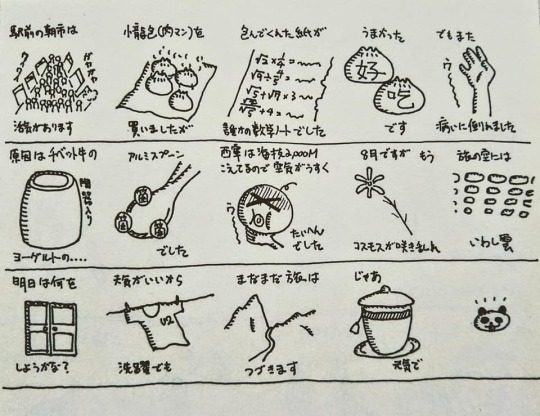 駅前の朝市は
ガヤガヤ
活気があります
小籠包(肉マン)を
買いましたが
包んでくれた紙が
誰かの数学ノートでした
うまかった
好
吃
です
でもまた
ウ
病いに倒れました
原因はチベット牛の
陶器入り
ヨーグルトの....
アルミスプーン
菌
菌
菌
でした
西寧は海抜2,000M
こえてるので空気がうすく
ウ
たいへん
でした
8月ですが もう
コスモスが咲き乱れ
旅の空には
いわし雲
明日は何を
しようかな?
天気がいいから
U2
洗濯でも
まだまだ旅は
つづきます
じゃあ
元気で